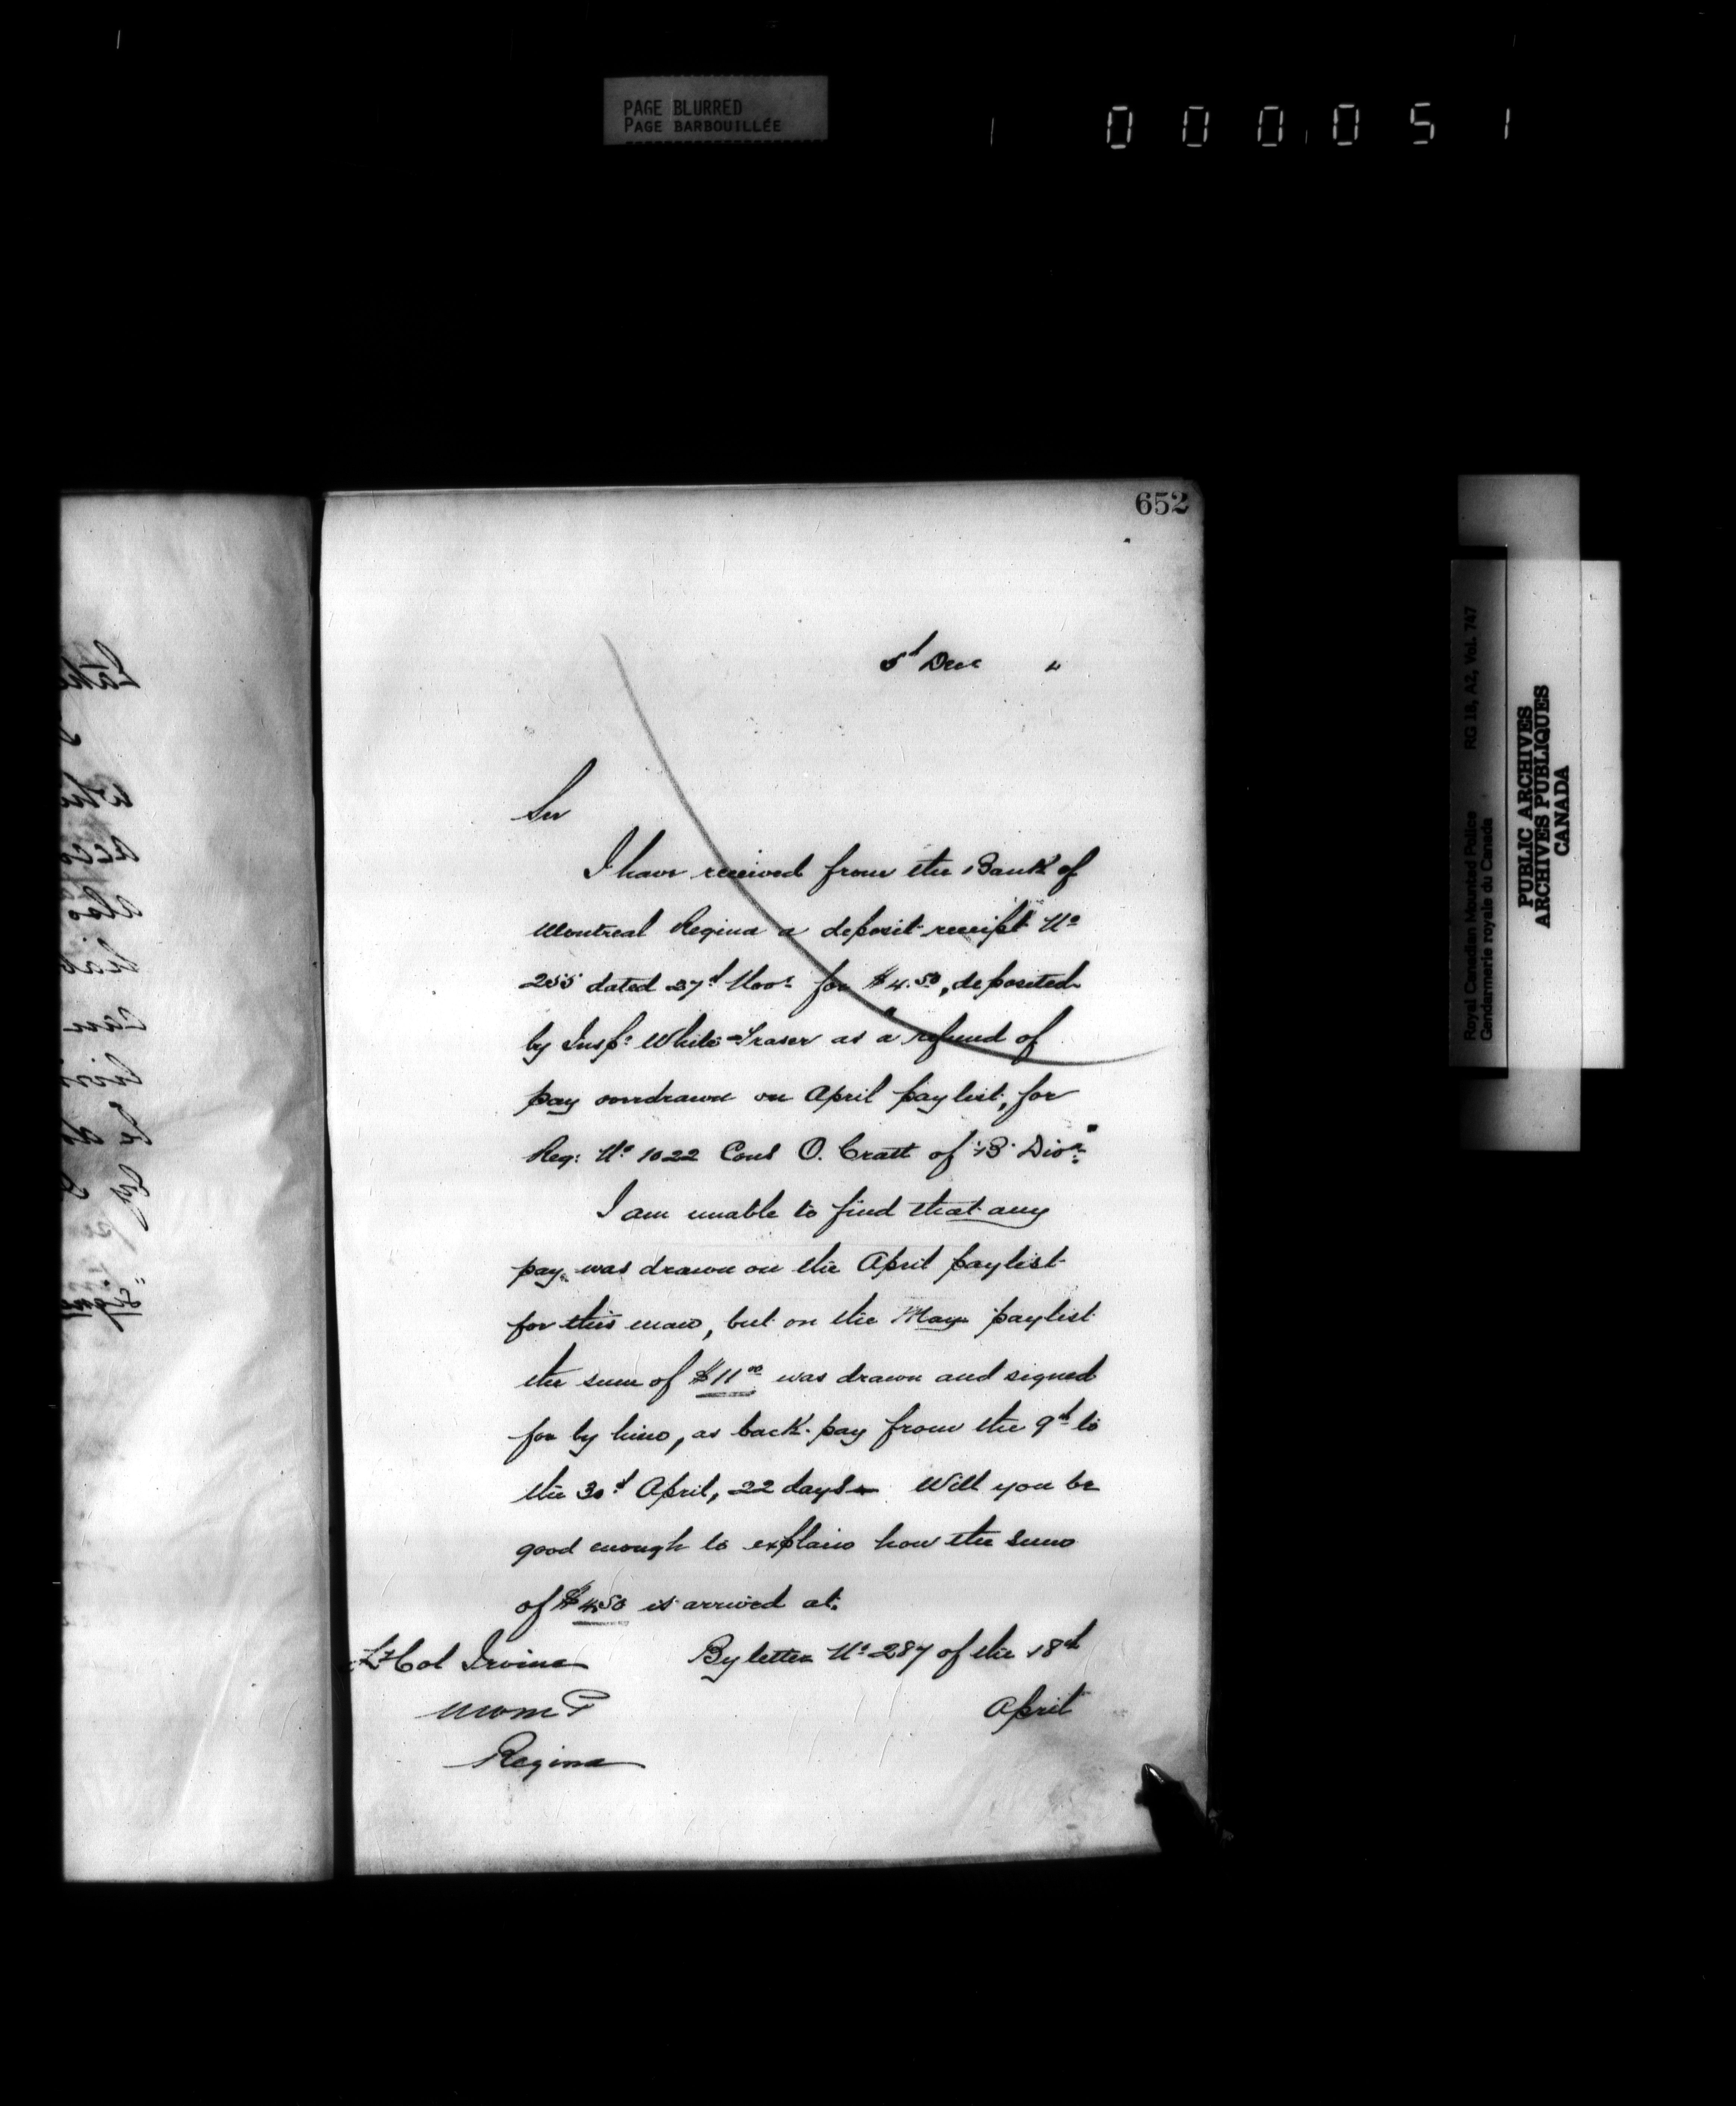 PAGE BLURRED
PAGE BARBOUILLÉE
000051
652
5th Decr 4
Sir
I have received from the Bank of
Montreal Regina a deposit receipt No
255 dated 27th Novr for $4.50, deposited
by Inspr White-Fraser as a refund of
pay overdrawn on April paylist, for
Reg: No 1022 Cons O. Cratt of "B" Divn:
I am unable to find that any
pay was drawn on the April paylist
for this man, but on the May paylist
the sum of $11.00 was drawn and signed
for by him, as back pay from the 9th to
the 30th April, 22 days. Will you be
good enough to explain how the sum
of $4.50 is arrived at.
Lt Col Irvine
NWMP
Regina
By letter No 287 of the 18th
April
Royal Canadian Mounted Police RG 18, A2, Vol. 747
Gendarmerie royale du Canada
PUBLIC ARCHIVES
ARCHIVES PUBLIQUES
CANADA